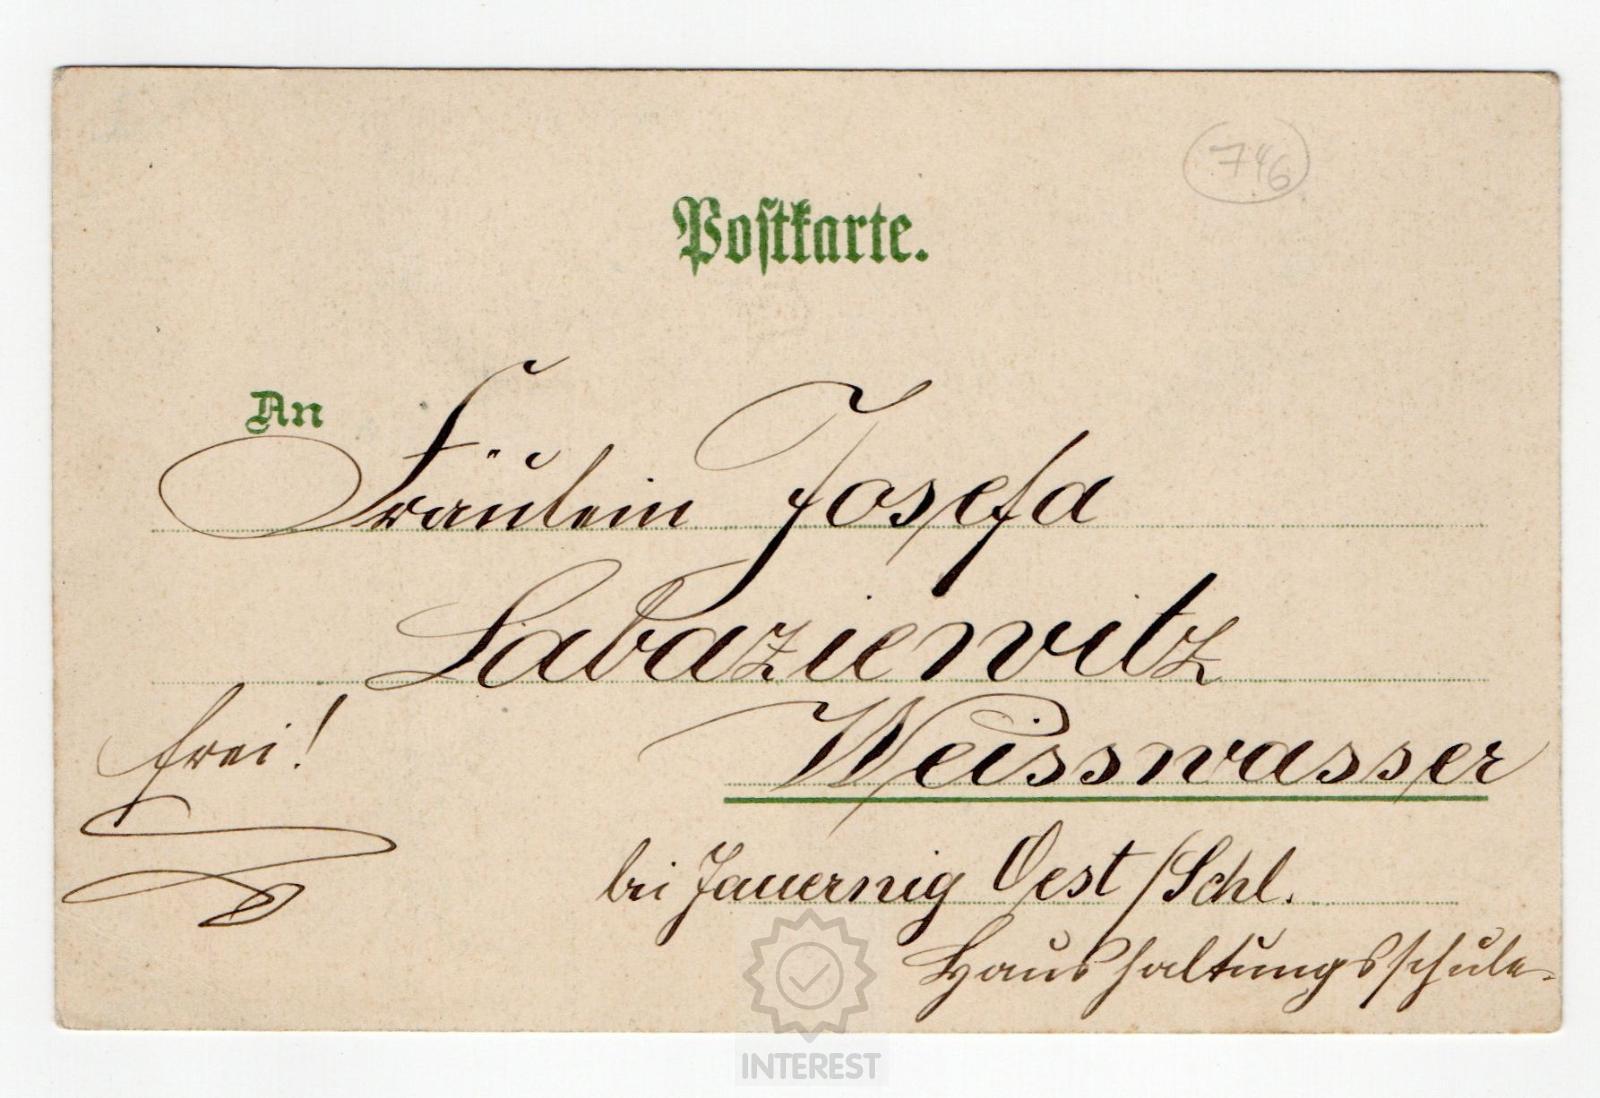 746
Postkarte.
An
Fräulein Josefa
Labaziewitz
frei!
Weisswasser
bei Jauernig Oest/Schl.
Haushaltungsschule.
INTEREST